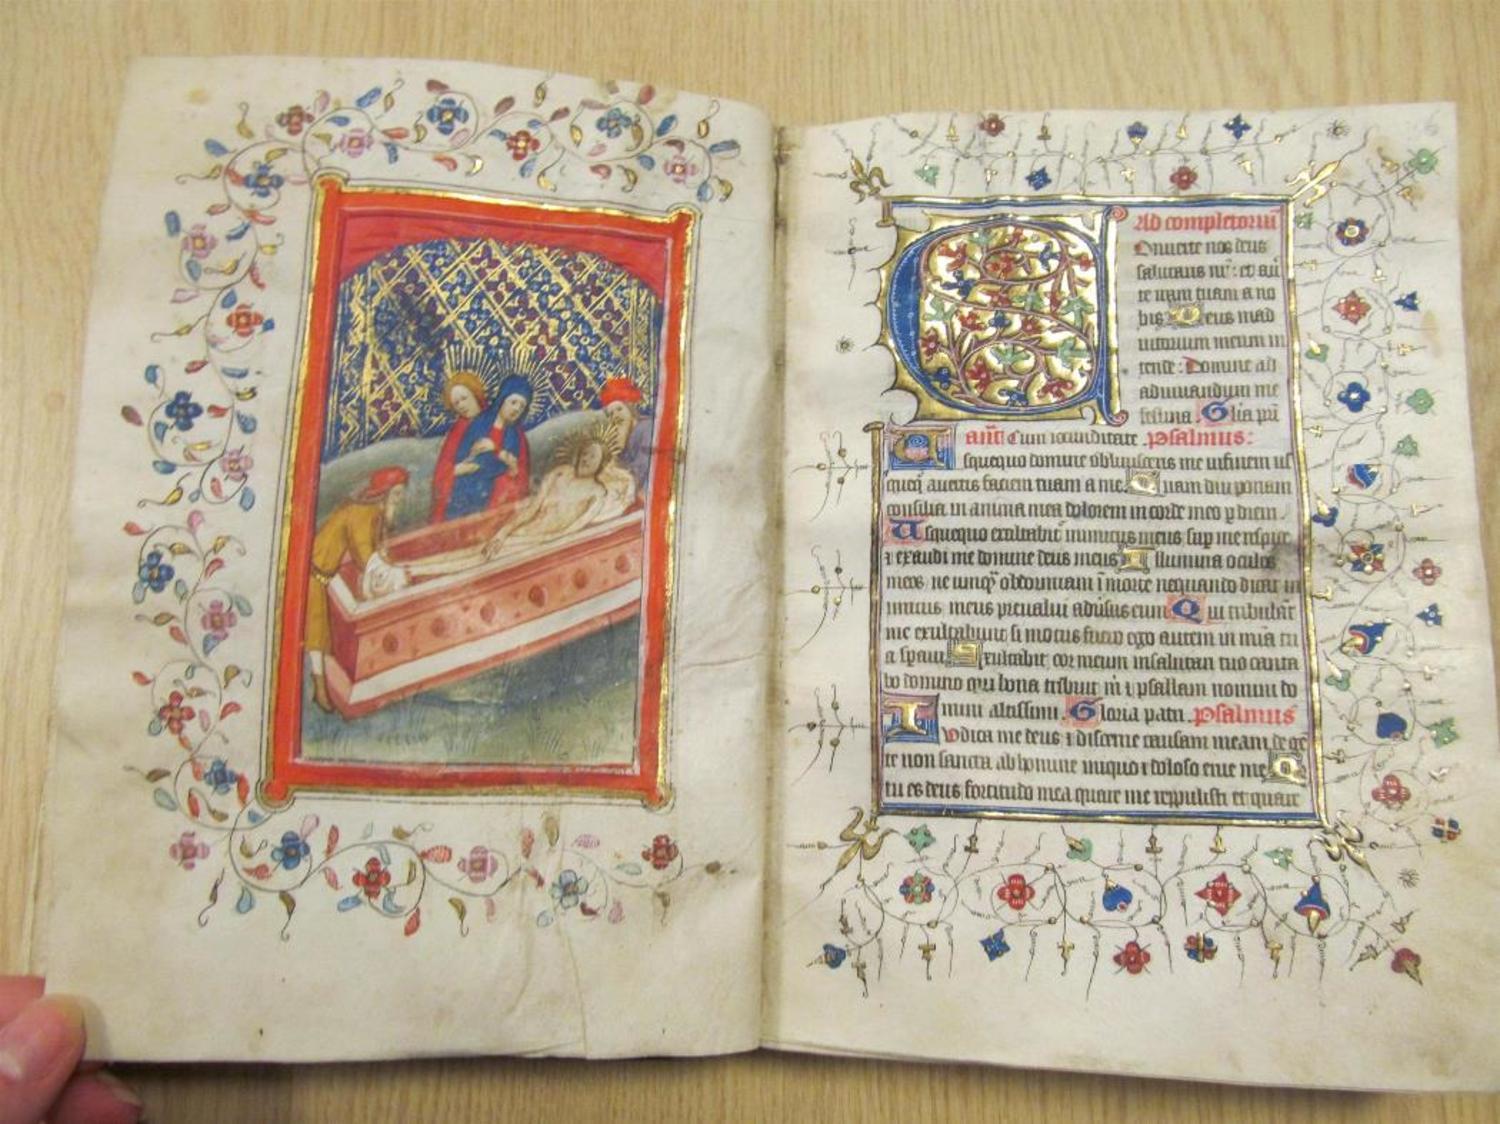 Ad completoriū
Onuerte nos deus
salutaris nr̄: et au
te iram tuam a no
bis Deus in ad
iutorium meum in
tende: Domine ad
adiuuandum me
festina. Glia pri
ant̄ Cum iocunditate. Psalmus:
Usquequo domine obliuisceris me in finem us
queq̄ auertis faciem tuam a me. Quam diu ponam
consilia in anima mea dolorem in corde meo p diem
Usquequo exaltabit̄ inimicus meus sup me respice
⁊ exaudi me domine deus meus Illumina oculos
meos ne unq̄ obdormiam ī morte nequando dicat in
imicus meus preualui adūsus eum Qui tribulāt
me exultabunt si motus fuero ego autem in mīa tu
a speraui Exultabit cor meum in salutari tuo canta
bo domino qui bona tribuit m̄ ⁊ psallam nomini do
mini altissimi. Gloria patri. Psalmus
Iudica me deus ⁊ discerne causam meam de gē
te non sancta ab homine iniquo ⁊ doloso erue me Q
tu es deus fortitudo mea quare me reppulisti et quare